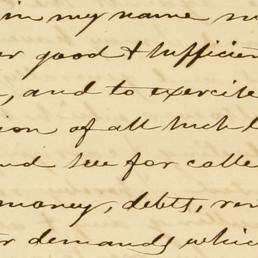 in my name
good & sufficien
and to exercise
ion of all such
nd sue for
money, debts, ren
r demands whic